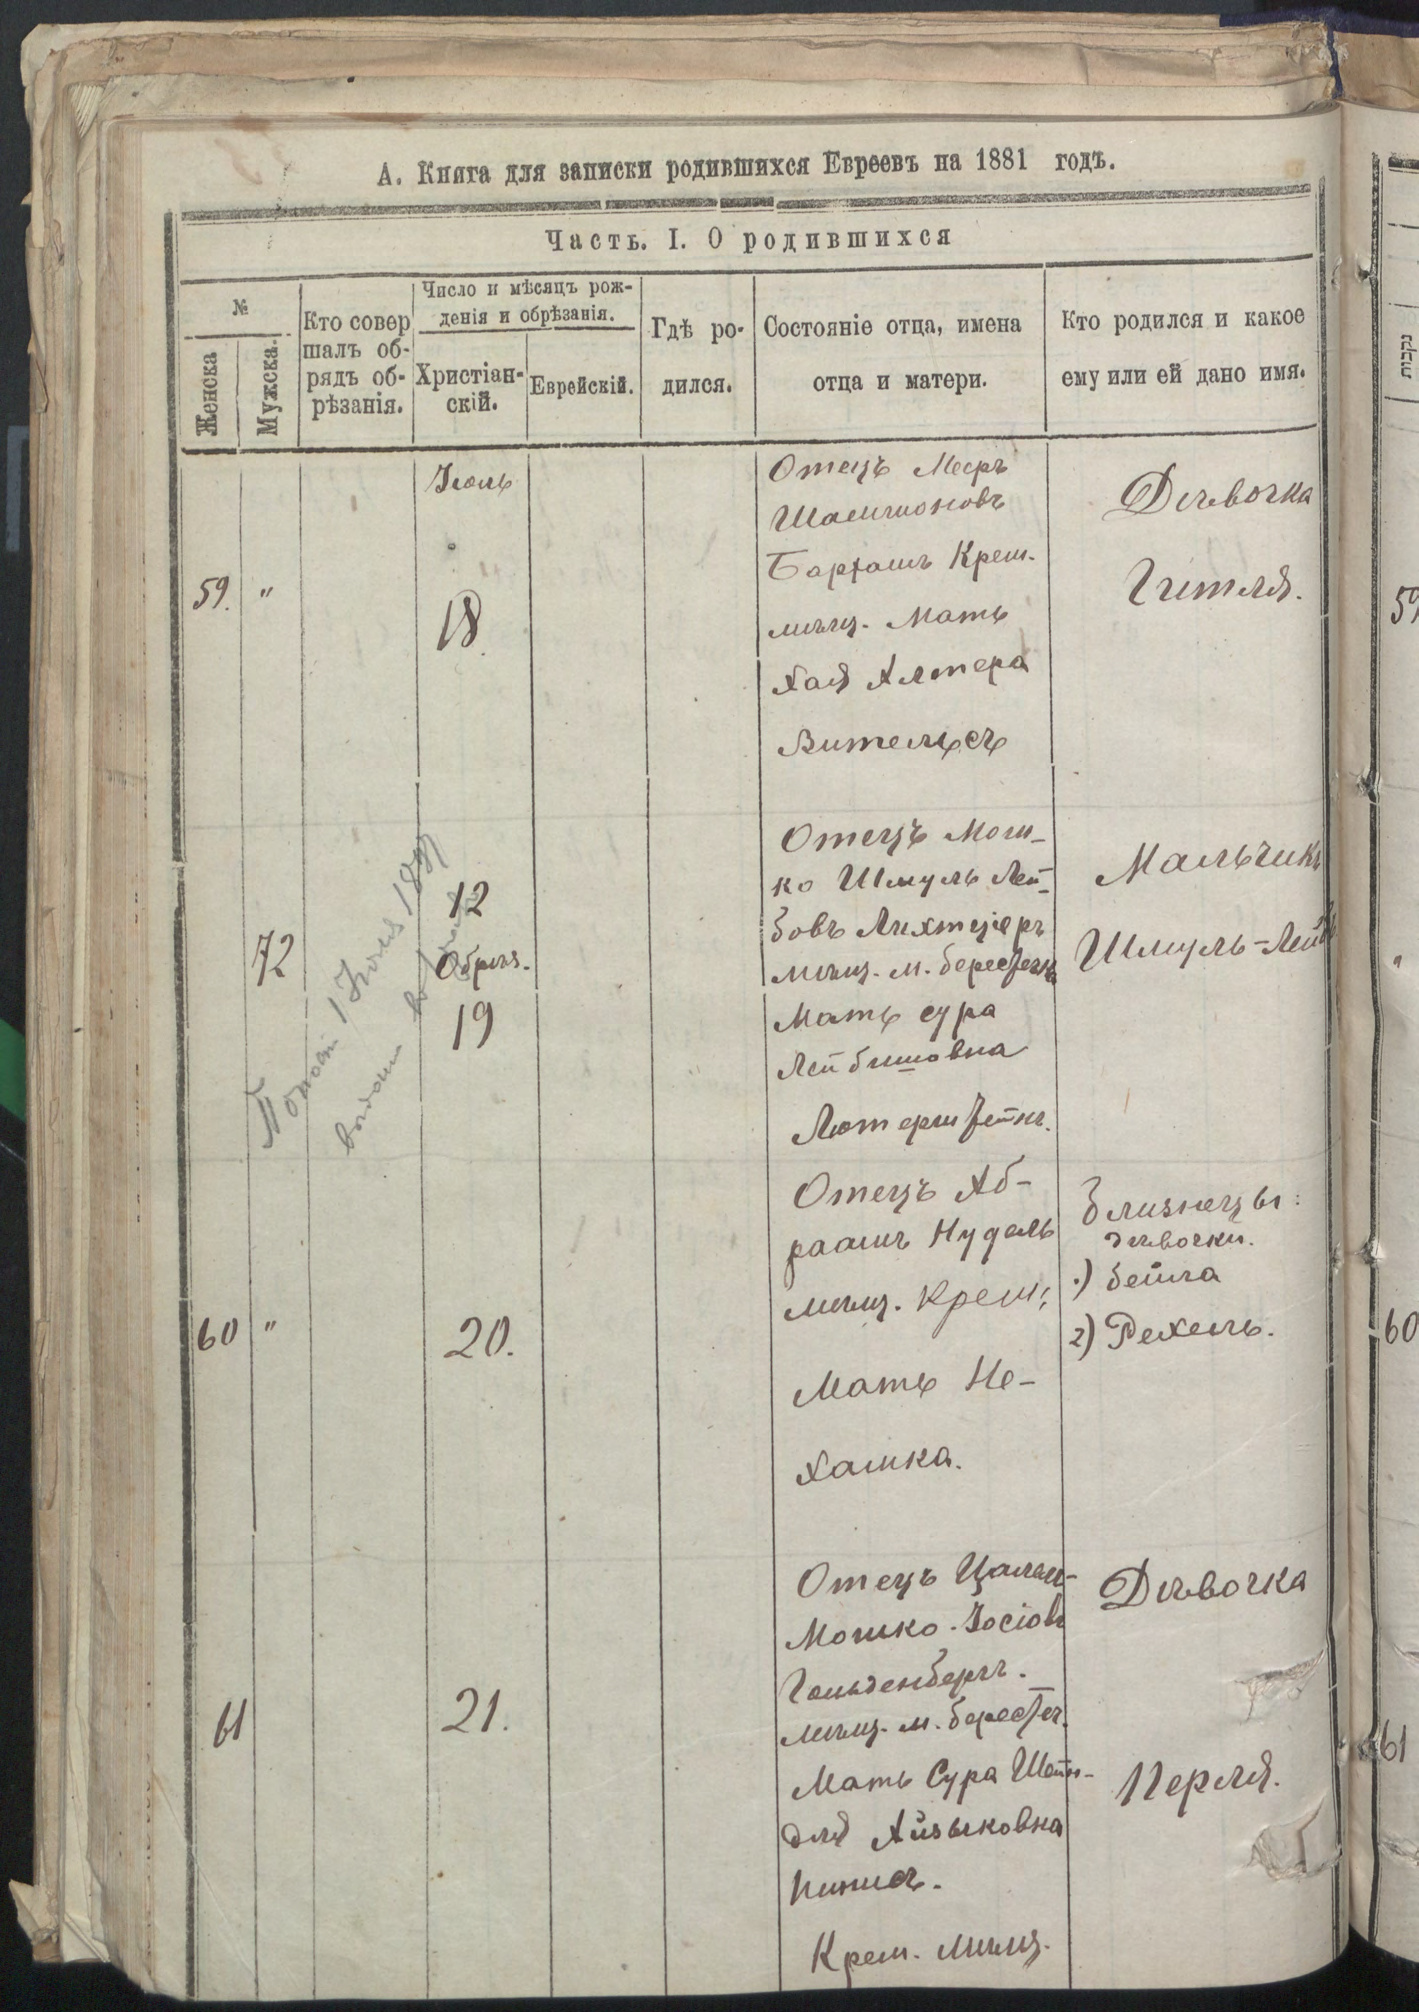 А. Книга для записки родившихся Евреевъ на 1881 годъ.
Часть. I. О родившихся
№
Женска
Мужска.
Кто совер
шалъ об-
рядъ об-
рѣзанія.
Число и мѣсяцъ рож-
денія и обрѣзанія.
Христіан-
скій.
Еврейскій.
Гдѣ ро-
дился.
Состояніе отца, имена
отца и матери.
Кто родился и какое
ему или ей дано имя.
59. "
Іюль
18.
Отецъ Мееръ
Шаміоновъ
Бархашъ Крем.
мѣщ. Мать
Хая Алтера
Дѣвочка
Гителя.
72
12
Обрѣз.
19
Отецъ Мош-
ко Шмуль Лей-
бовъ
мѣщ. м. берестечк
Мать сура
Лейбишовна
Мальчикъ
Шмуль-Лейб
1881
60 "
20.
Отецъ Аб-
раамъ Нудель
мѣщ. Крем.
Мать Не-
хамка.
Близнецы:
дѣвочки.
1) бейла
2) Рехель.
61
21.
Отецъ Цалель-
Мошко-Іосіовъ
Гольденбергъ.
мѣщ. м. берестеч.
Мать Сура Шейн-
для Айзыковна
Пинисъ.
Крем. мѣщ.
Дѣвочка
Перля.
נקבות
59
"
60
61